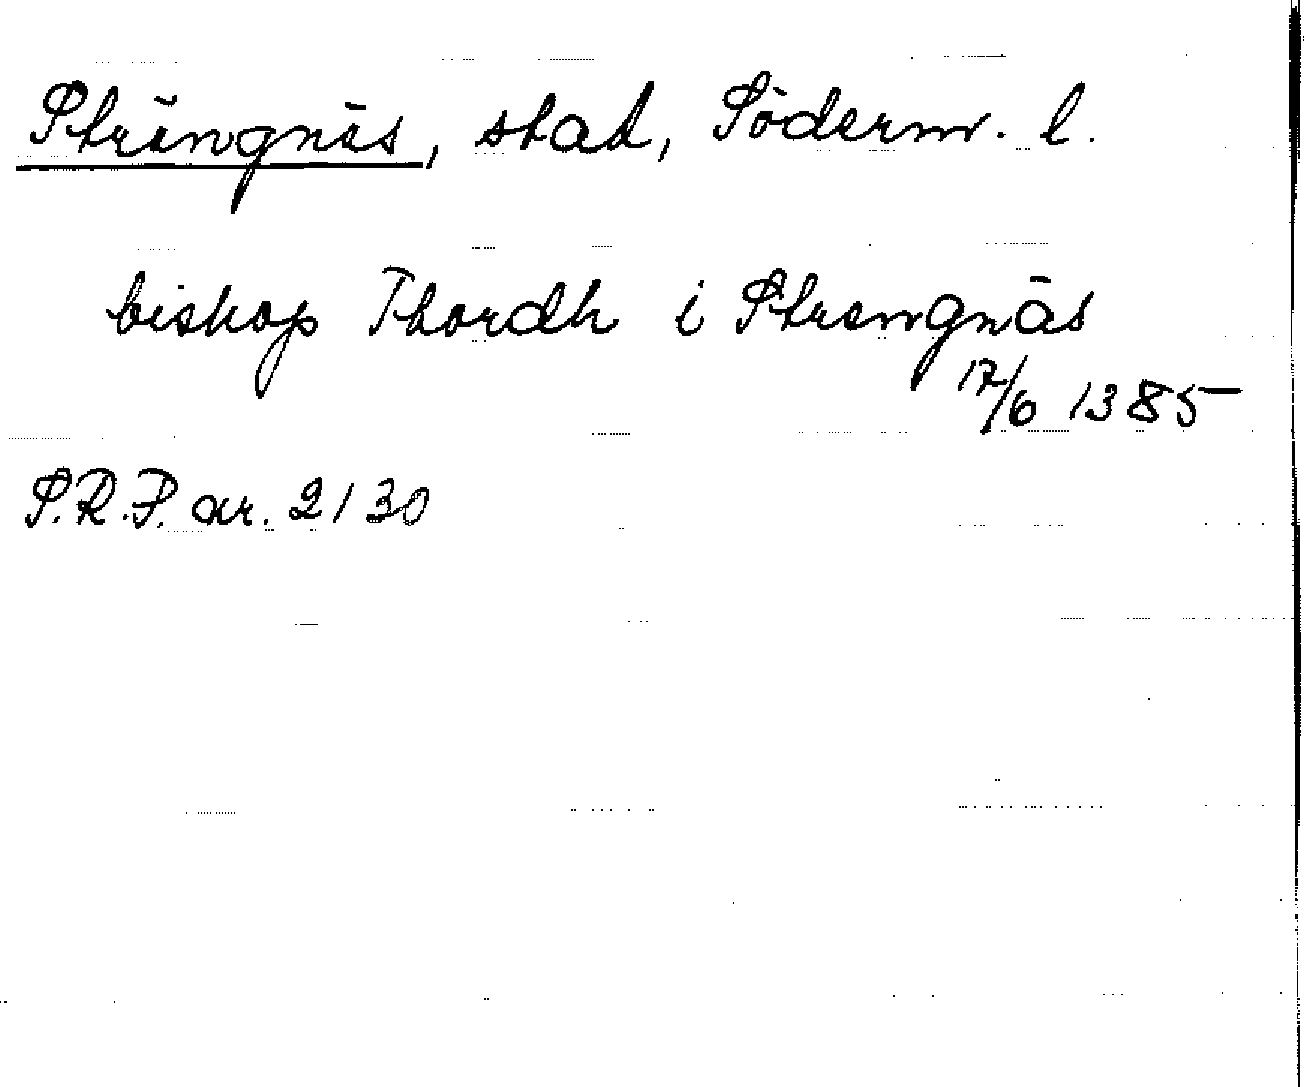 Strängnäs, stad, Söderm. l.
biskop Thordh i Strengnäs
17/6 1385
S.R.P. nr. 2130